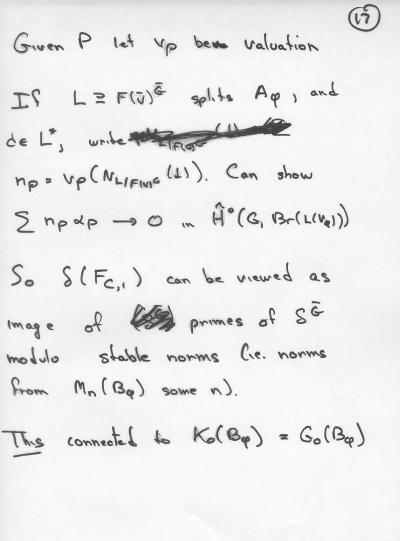 Given P let v_P be valuation
If L ⊇ F(Ū)^Ḡ splits A_φ, and
d ∈ L*, write
n_P = v_P(N_{L/F(U)^G}(d)). Can show
Σ n_P α_P → 0 in Ĥ⁰(G, Br(L(V_φ)))
So δ(F_{C,1}) can be viewed as
image of primes of S^Ḡ
modulo stable norms (i.e. norms
from M_n(B_φ) some n).
This connected to K₀(B_φ) = G₀(B_φ)